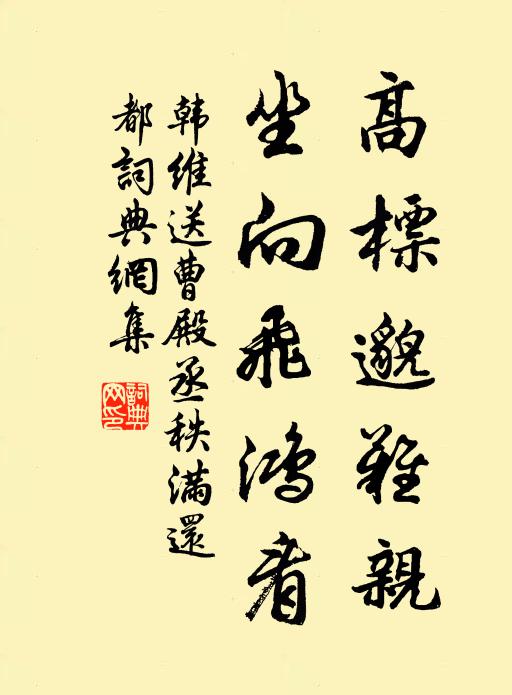 高標邈難親
坐向飛鴻看
韩維送曹殿丞秩滿還
都詞典網集
詞典
网印